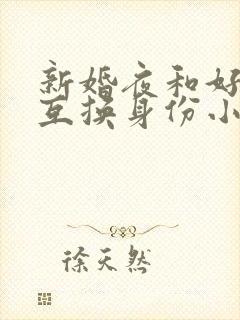 新婚夜和好
互换身份小
徐天然